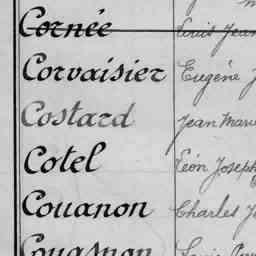 Cornée Louis Jean
Corvaisier Eugène J
Costard Jean Marie
Cotel Léon Joseph
Couanon Charles J